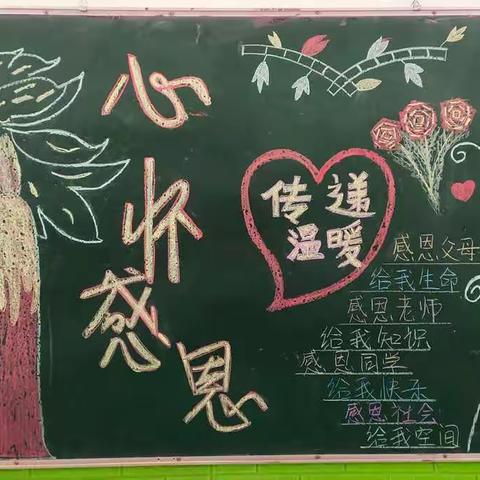 心怀感恩
传递
温暖
感恩父母
给我生命
感恩老师
给我知识
感恩同学
给我快乐
感恩社会
给我空间